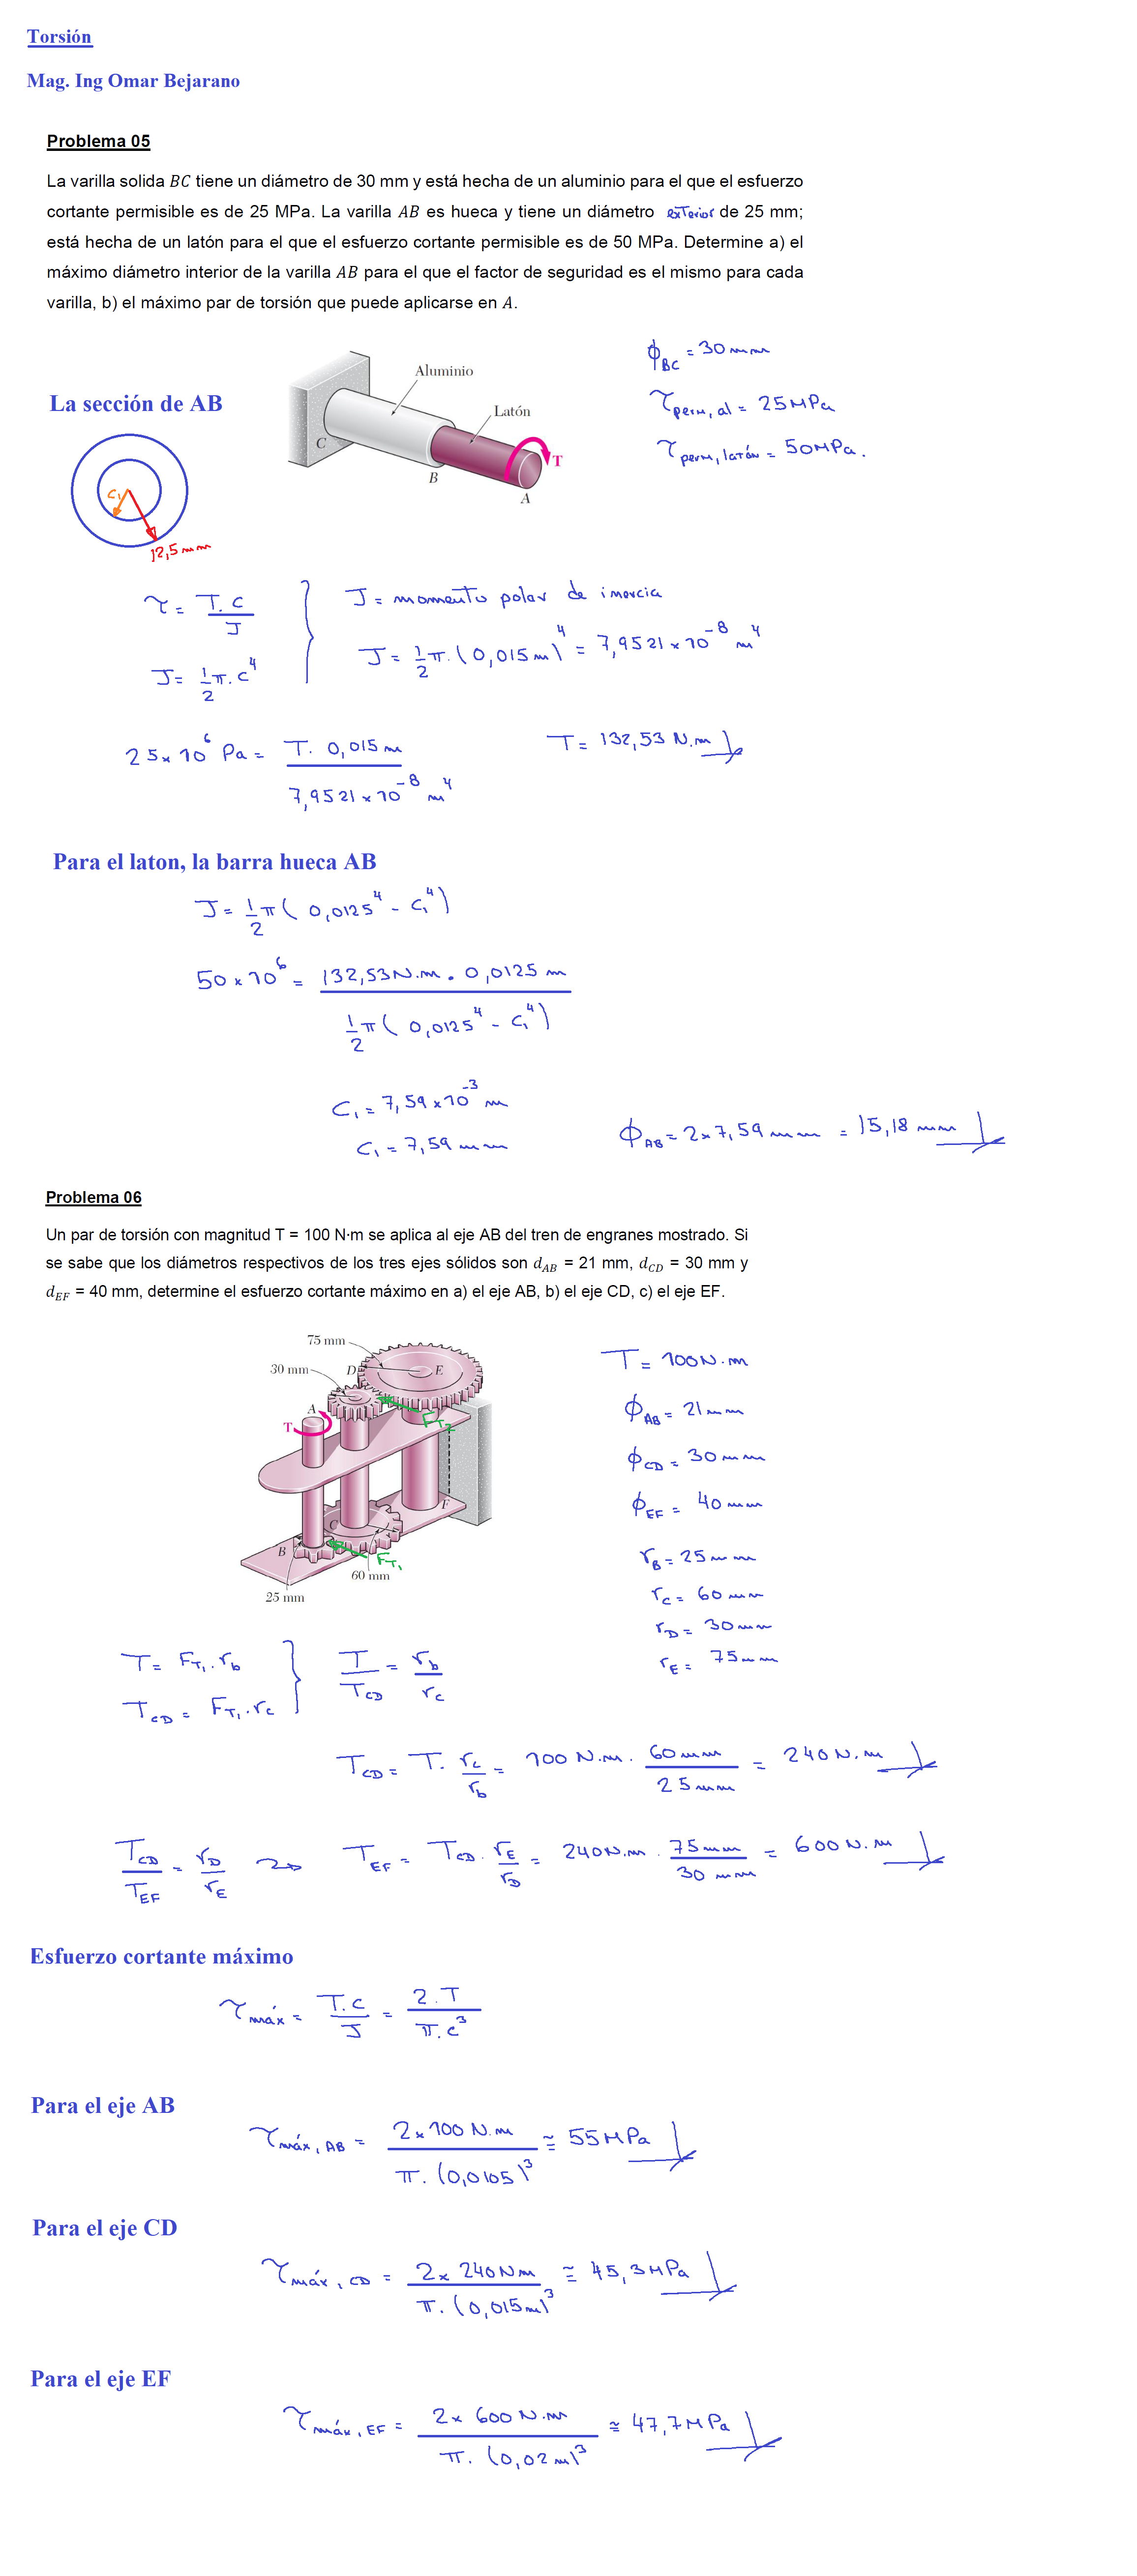 Torsión
Mag. Ing Omar Bejarano
Problema 05
La varilla solida BC tiene un diámetro de 30 mm y está hecha de un aluminio para el que el esfuerzo
cortante permisible es de 25 MPa. La varilla AB es hueca y tiene un diámetro exterior de 25 mm;
está hecha de un latón para el que el esfuerzo cortante permisible es de 50 MPa. Determine a) el
máximo diámetro interior de la varilla AB para el que el factor de seguridad es el mismo para cada
varilla, b) el máximo par de torsión que puede aplicarse en A.
ϕ_BC = 30 mm
τ_perm, al = 25 MPa
τ_perm, latón = 50 MPa.
Aluminio
Latón
C
B
A
T
La sección de AB
C₁
12,5 mm
τ = T.C / J
J = 1/2 π.C⁴
J = momento polar de inercia
J = 1/2 π.(0,015 m)⁴ = 7,9521 × 10⁻⁸ m⁴
25 × 10⁶ Pa = T. 0,015 m / 7,9521 × 10⁻⁸ m⁴
T = 132,53 N.m
Para el laton, la barra hueca AB
J = 1/2 π (0,0125⁴ - C₁⁴)
50 × 10⁶ = 132,53 N.m . 0,0125 m / 1/2 π (0,0125⁴ - C₁⁴)
C₁ = 7,59 × 10⁻³ m
C₁ = 7,59 mm
ϕ_AB = 2 × 7,59 mm = 15,18 mm
Problema 06
Un par de torsión con magnitud T = 100 N·m se aplica al eje AB del tren de engranes mostrado. Si
se sabe que los diámetros respectivos de los tres ejes sólidos son d_AB = 21 mm, d_CD = 30 mm y
d_EF = 40 mm, determine el esfuerzo cortante máximo en a) el eje AB, b) el eje CD, c) el eje EF.
75 mm
30 mm
D
E
A
T
F_T₂
F
C
B
F_T₁
60 mm
25 mm
T = 100 N.m
ϕ_AB = 21 mm
ϕ_CD = 30 mm
ϕ_EF = 40 mm
r_B = 25 mm
r_C = 60 mm
r_D = 30 mm
r_E = 75 mm
T = F_T₁ . r_b
T_CD = F_T₁ . r_c
T / T_CD = r_b / r_c
T_CD = T. r_c / r_b = 100 N.m . 60 mm / 25 mm = 240 N.m
T_CD / T_EF = r_D / r_E
T_EF = T_CD . r_E / r_D = 240 N.m . 75 mm / 30 mm = 600 N.m
Esfuerzo cortante máximo
τ_máx = T.C / J = 2.T / π.C³
Para el eje AB
τ_máx, AB = 2 × 100 N.m / π.(0,0105)³ ≅ 55 MPa
Para el eje CD
τ_máx, CD = 2 × 240 N m / π.(0,015 m)³ ≅ 45,3 MPa
Para el eje EF
τ_máx, EF = 2 × 600 N.m / π.(0,02 m)³ ≅ 47,7 MPa